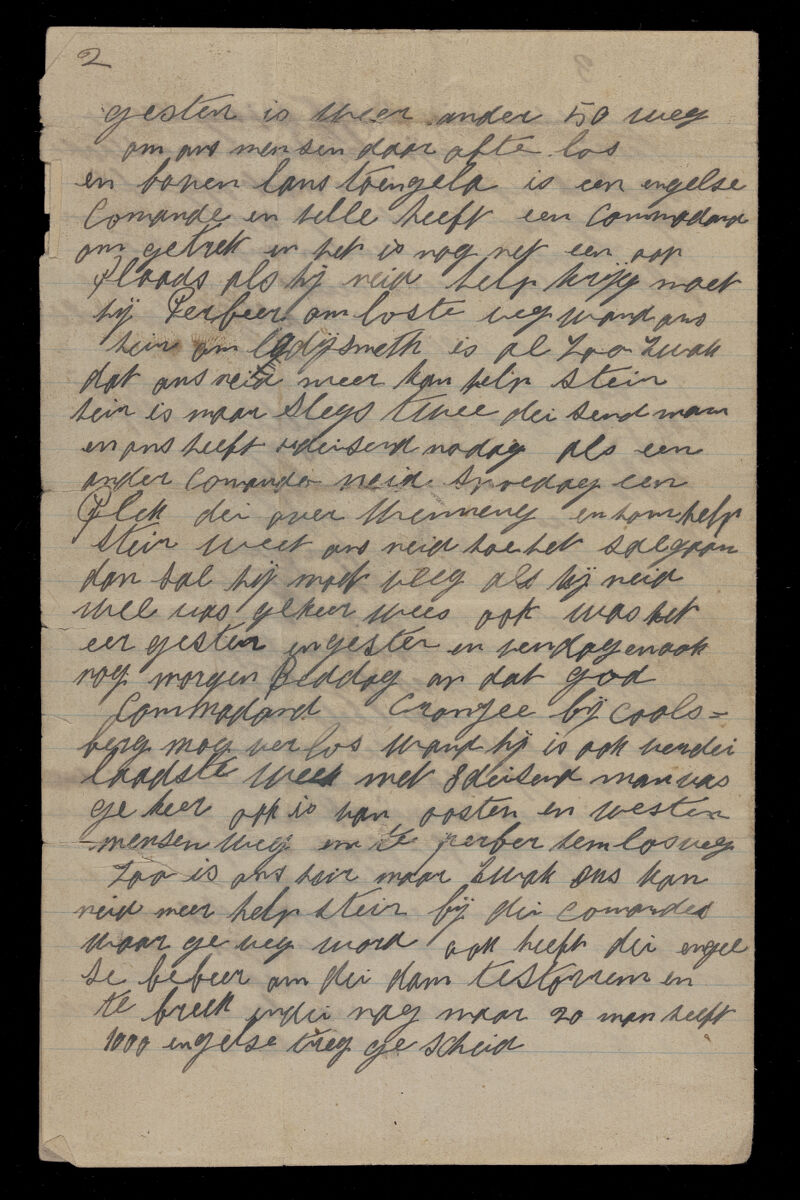 2
gesten is weer ander 50 weg
om ons mensen daar afte los
en boven lans toengela is een engelse
Comande en telle heeft een Commodand
om getrek en het is nog net een oop
Plaads als hij neid help krijg moet
hij Perbeer om loste veg wand ons
heir om ladijsmeth is al Zoo Zwak
dat ons neid meer kan help stein
heir is maar slegs twee dei send man
en ons heeft deisend nodag als een
ander Comando neid spoedag een
Plek dei over Wenneng en hom help
stein weet ons neid hoe het sal gaan
dan sal hij moet vleg als hij neid
wel vas gekeer wees ook was het
eer gester en gester en vendag en ook
nog morgen Beddag an dat god
Commodand Cronjee bij Cools=
berg mog verlos wand hij is ook verdei
laadste week met 8 deisend man vas
ge keer ook is van oosten en westen
mensen weg om te perber hem losveg
Zoo is ons heir maar Zwak ons kan
neid meer help stein bij dei comandes
waar ge veg word ook heeft dei engel
se bebeer om dei dam testorem en
te breek en dei nag maar 20 man heeft
1000 engelse treg ge scheid